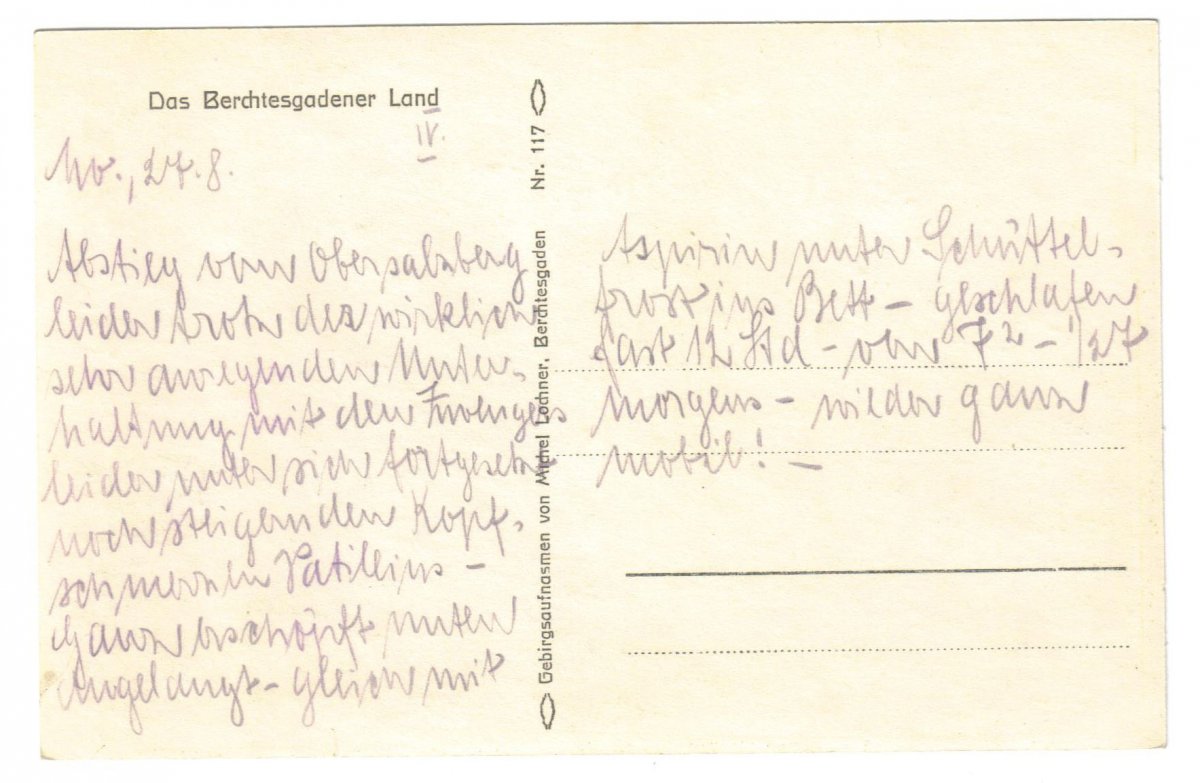 Das Berchtesgadener Land
IV.
Mo., 27.8.
Abstieg vom Obersalzberg
leider trotz der wirklich
sehr anregenden Unter-
haltung mit den
leider unter sich fortgesetzt
noch steigernden Kopf-
schmerzen
ganz erschöpft unten
Angelangt – gleich mit
Gebirgsaufnasmen von Michel Lochner, Berchtesgaden Nr. 117
Aspirin unter Schüttel-
frost ins Bett – geschlafen
fast 12 Std – von
morgens – wieder ganz
mobil! –